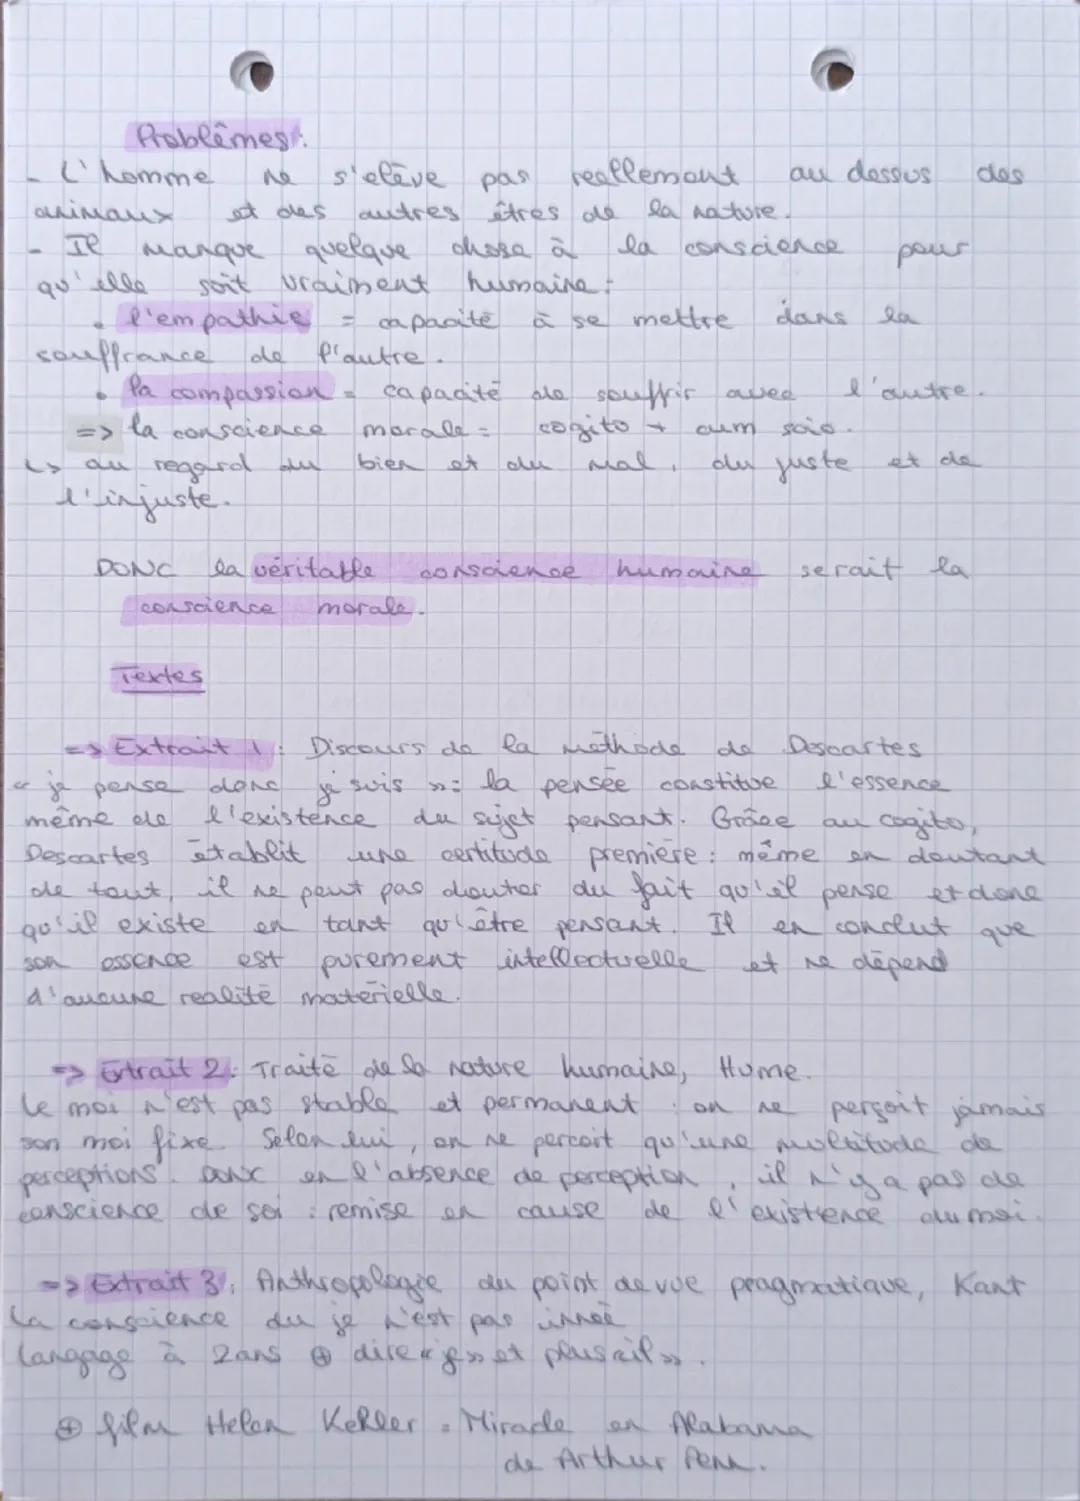 Problèmes :
- L'homme ne s'elève pas reellement au dessus des
animaux et des autres êtres de la nature.
- Il manque quelque chose à la conscience pour
qu'elle soit vraiment humaine :
• l'empathie = capacité à se mettre dans la
souffrance de l'autre.
• la compassion = capacité de souffrir avec l'autre.
=> la conscience morale = cogito + cum scio.
↳ au regard du bien et du mal, du juste et de
l'injuste.
DONC la véritable conscience humaine serait la
conscience morale.
Textes
=> Extrait 1 : Discours de la méthode de Descartes
« je pense donc je suis » : la pensée constitue l'essence
même de l'existence du sujet pensant. Grâce au cogito,
Descartes établit une certitude première : même en doutant
de tout, il ne peut pas douter du fait qu'il pense et donc
qu'il existe en tant qu'être pensant. Il en conclut que
son essence est purement intellectuelle et ne dépend
d'aucune realité matérielle.
=> Extrait 2 : Traité de la nature humaine, Hume.
Le moi n'est pas stable et permanent : on ne perçoit jamais
son moi fixe. Selon lui, on ne percoit qu'une multitude de
perceptions. Donc en l'absence de perception, il n'y a pas de
conscience de soi : remise en cause de l'existence du moi.
=> Extrait 3 : Anthropologie du point de vue pragmatique, Kant
La conscience du je n'est pas innée
langage à 2ans ⊕ dire « je » et plus « il ».
⊕ film Helen Keller = Miracle en Alabama
de Arthur Penn.